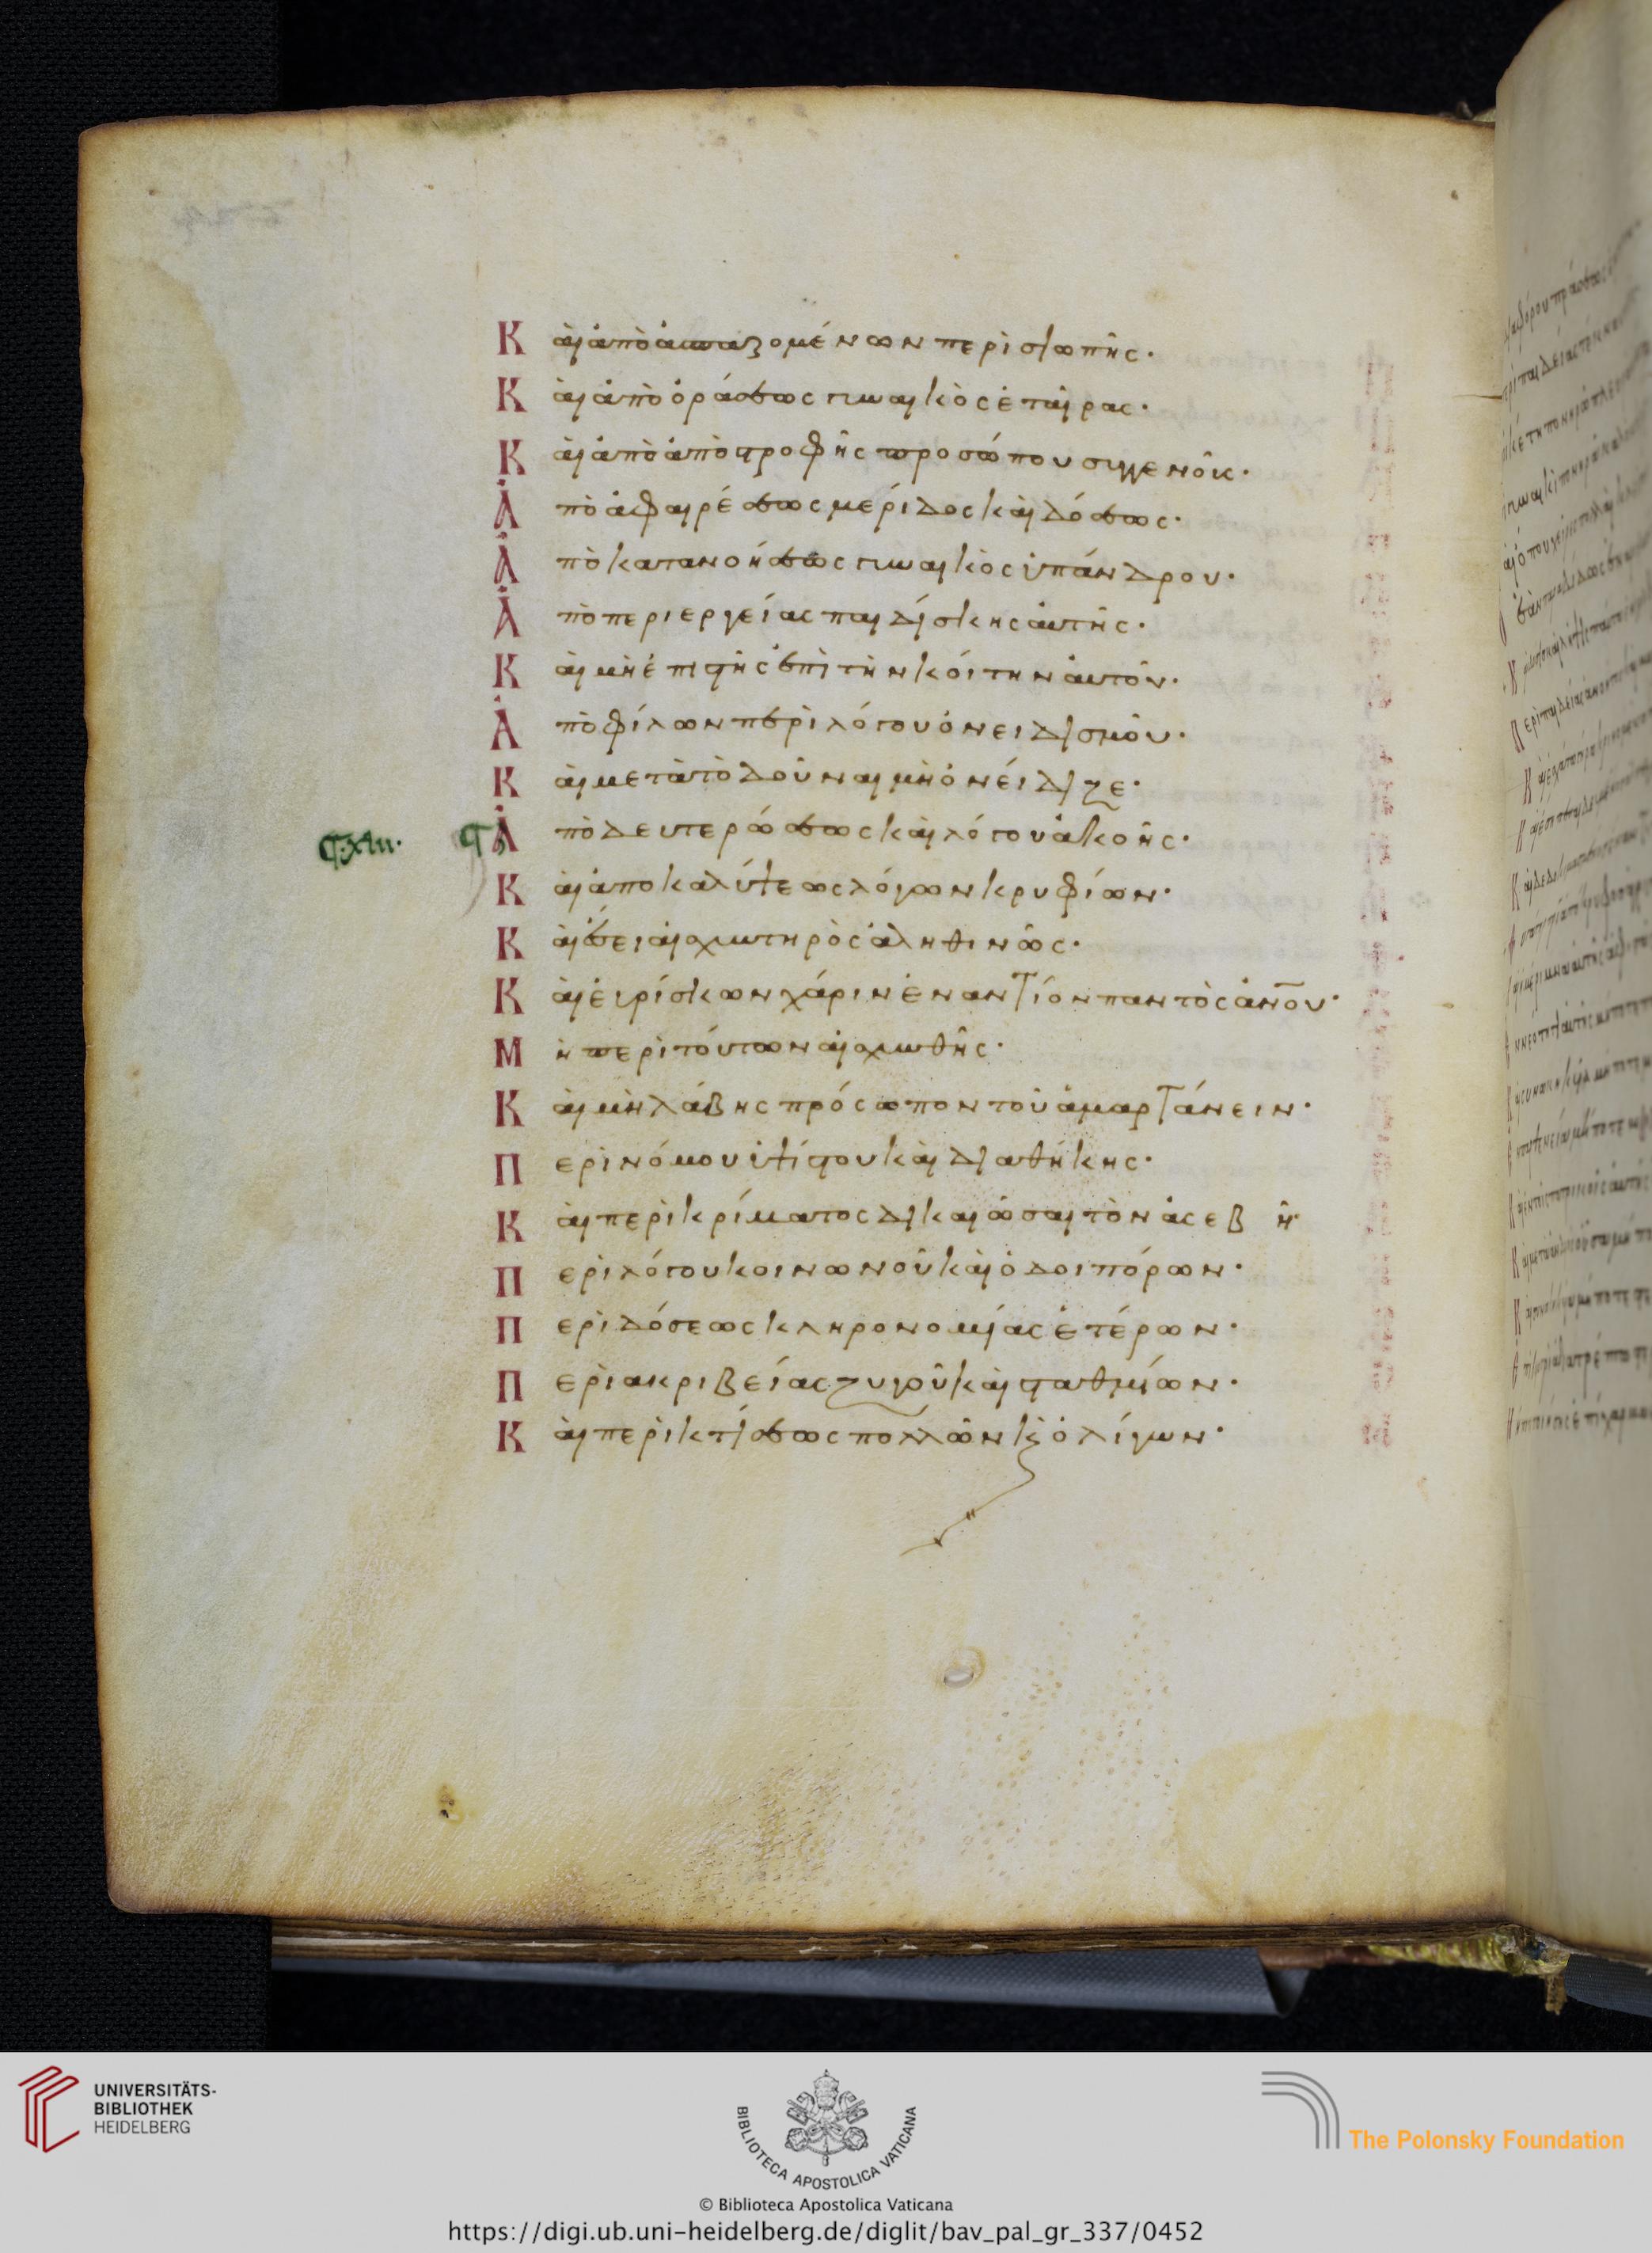 Κ αὶ ἀπὸ ἀσπαζομένων περὶ σιωπῆς·
Κ αὶ ἀπὸ ὁράσεως γυναικὸς ἑταίρας·
Κ αὶ ἀπὸ ἀπὸστροφῆς προσώπου συγγενοῦς·
Ἀ πὸ ἀφαιρέσεως μερίδος καὶ δόσεως·
Ἀ πὸ κατανοήσεως γυναικὸς ὑπάνδρου·
Ἀ πὸ περιεργείας παιδίσκης αὐτῆς·
Κ αὶ μὴ ἐπιστῆς ἐπὶ τὴν κόιτην αὐτοῦ·
Ἀ πὸ φίλων περὶ λόγου ὀνειδισμοῦ·
Κ αὶ μετὰ τὸ δοῦναι μὴ ὀνείδιζε·
C. XLII.
Ἀ πὸ δευτερώσεως καὶ λόγου ἀκοῆς·
Κ αὶ ἀποκαλύψεως λόγων κρυφίων·
Κ αὶ ἔσει αἰσχυντηρὸς ἀληθινῶς·
Κ αὶ εὑρίσκων χάριν ἐναντίον παντὸς ἀν̅ου·
Μ ὴ περὶ τούτων αἰσχυνθῆς·
Κ αὶ μὴ λάβης πρόσωπον τοῦ ἁμαρτάνειν·
Π ερὶ νόμου ὑψίστου καὶ διαθήκης·
Κ αὶ περὶ κρίματος δικαιῶσαι τὸν ἀσεβῆ·
Π ερὶ λόγου κοινωνοῦ καὶ ὁδοιπόρων·
Π ερὶ δόσεως κληρονομίας ἑτέρων·
Π ερὶ ακριβείας ζυγοῦ καὶ σταθμίων·
Κ αὶ περὶ κτίσεως πολλῶν κ̀ ὀλίγων·
UNIVERSITÄTS-
BIBLIOTHEK
HEIDELBERG
BIBLIOTECA APOSTOLICA VATICANA
The Polonsky Foundation
© Biblioteca Apostolica Vaticana
https://digi.ub.uni-heidelberg.de/diglit/bav_pal_gr_337/0452